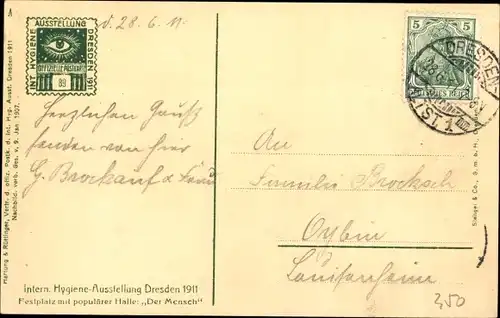 A
INT. HYGIENE
AUSSTELLUNG
DRESDEN 1911
OFFIZIELLE POSTKARTE
99
d. 28.6.11.
Herzlichen Gruß
senden von hier
G. Brockauf & Frau
Hartung & Rüttinger, Vertr. d. offiz. Postk. d. Int. Hyg. Ausst. Dresden 1911
Nachbild. verb. Ges. v. 9. Jan. 1907.
5 5
DEUTSCHES REICH
DRESDEN
ALTST. 1
An
Familie Brocksch
Oybin
Stengel & Co., G. m. b. H.
Intern. Hygiene-Ausstellung Dresden 1911
Festplatz mit populärer Halle: „Der Mensch"
3,50